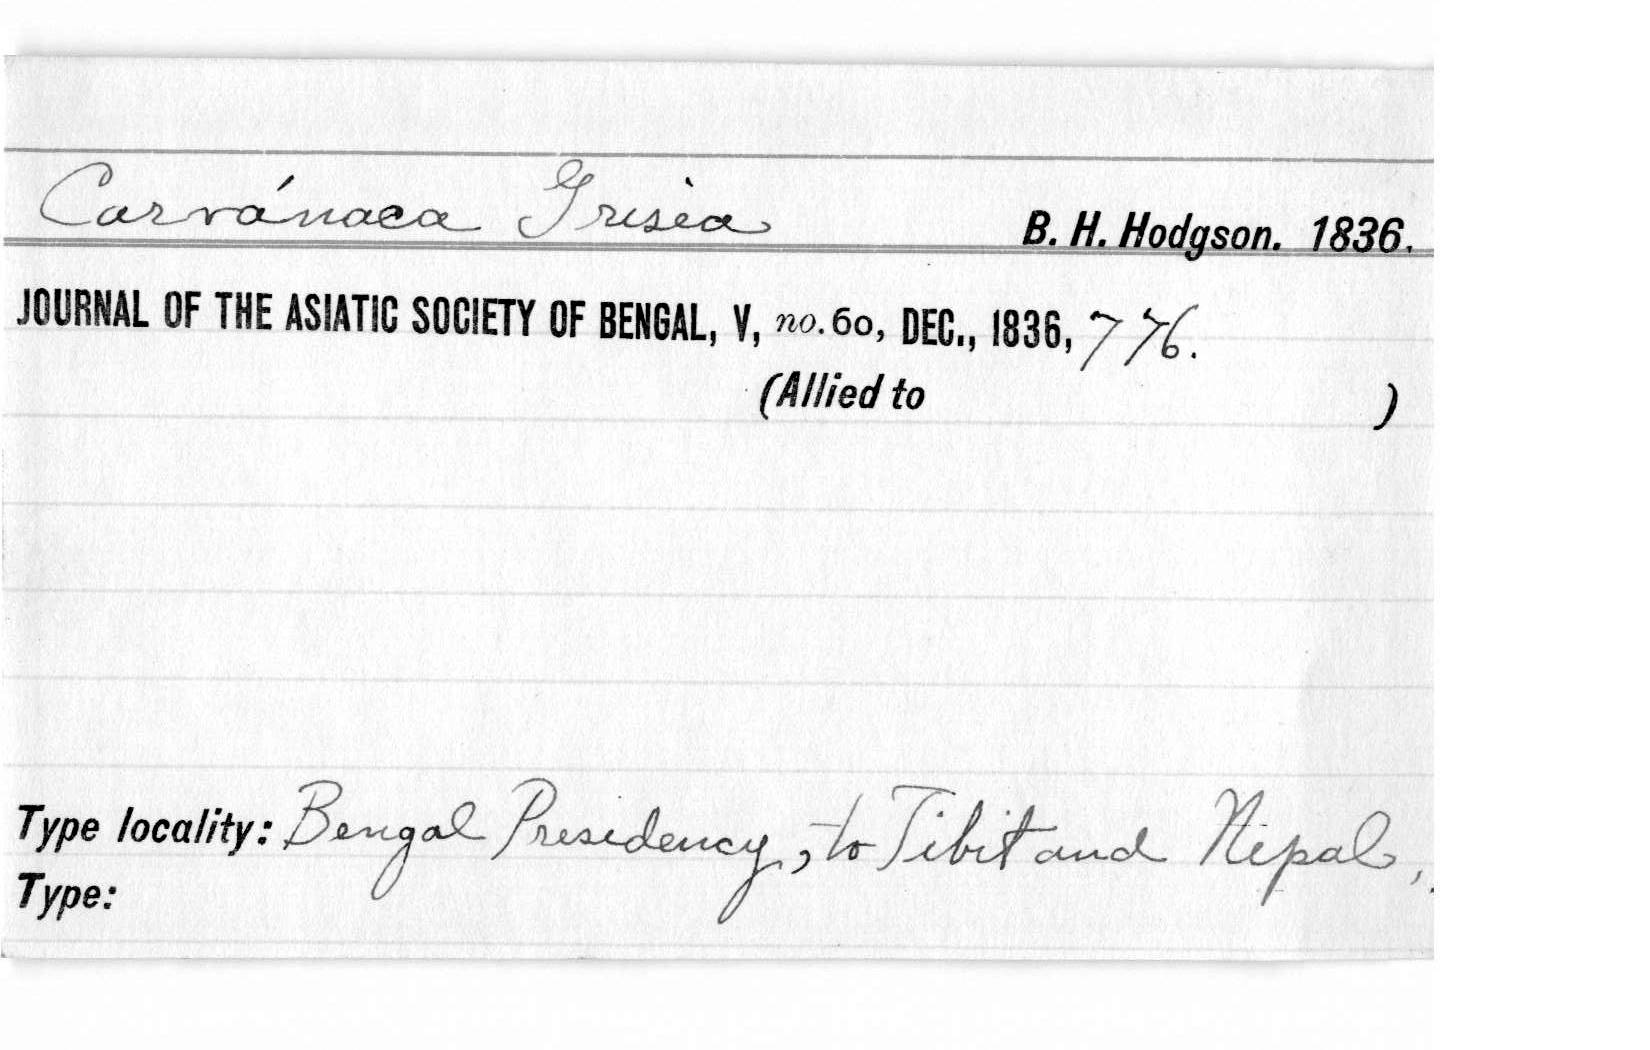 Carvánaca Grisea B. H. Hodgson. 1836.
JOURNAL OF THE ASIATIC SOCIETY OF BENGAL, V, no. 60, DEC., 1836, 776.
(Allied to )
Type locality: Bengal Presidency, to Tibit and Nipal,.
Type: